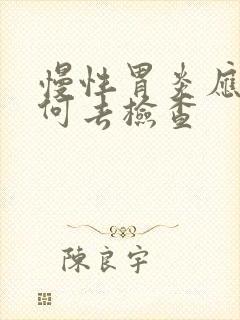 慢性胃炎應
何去檢查
陳良宇